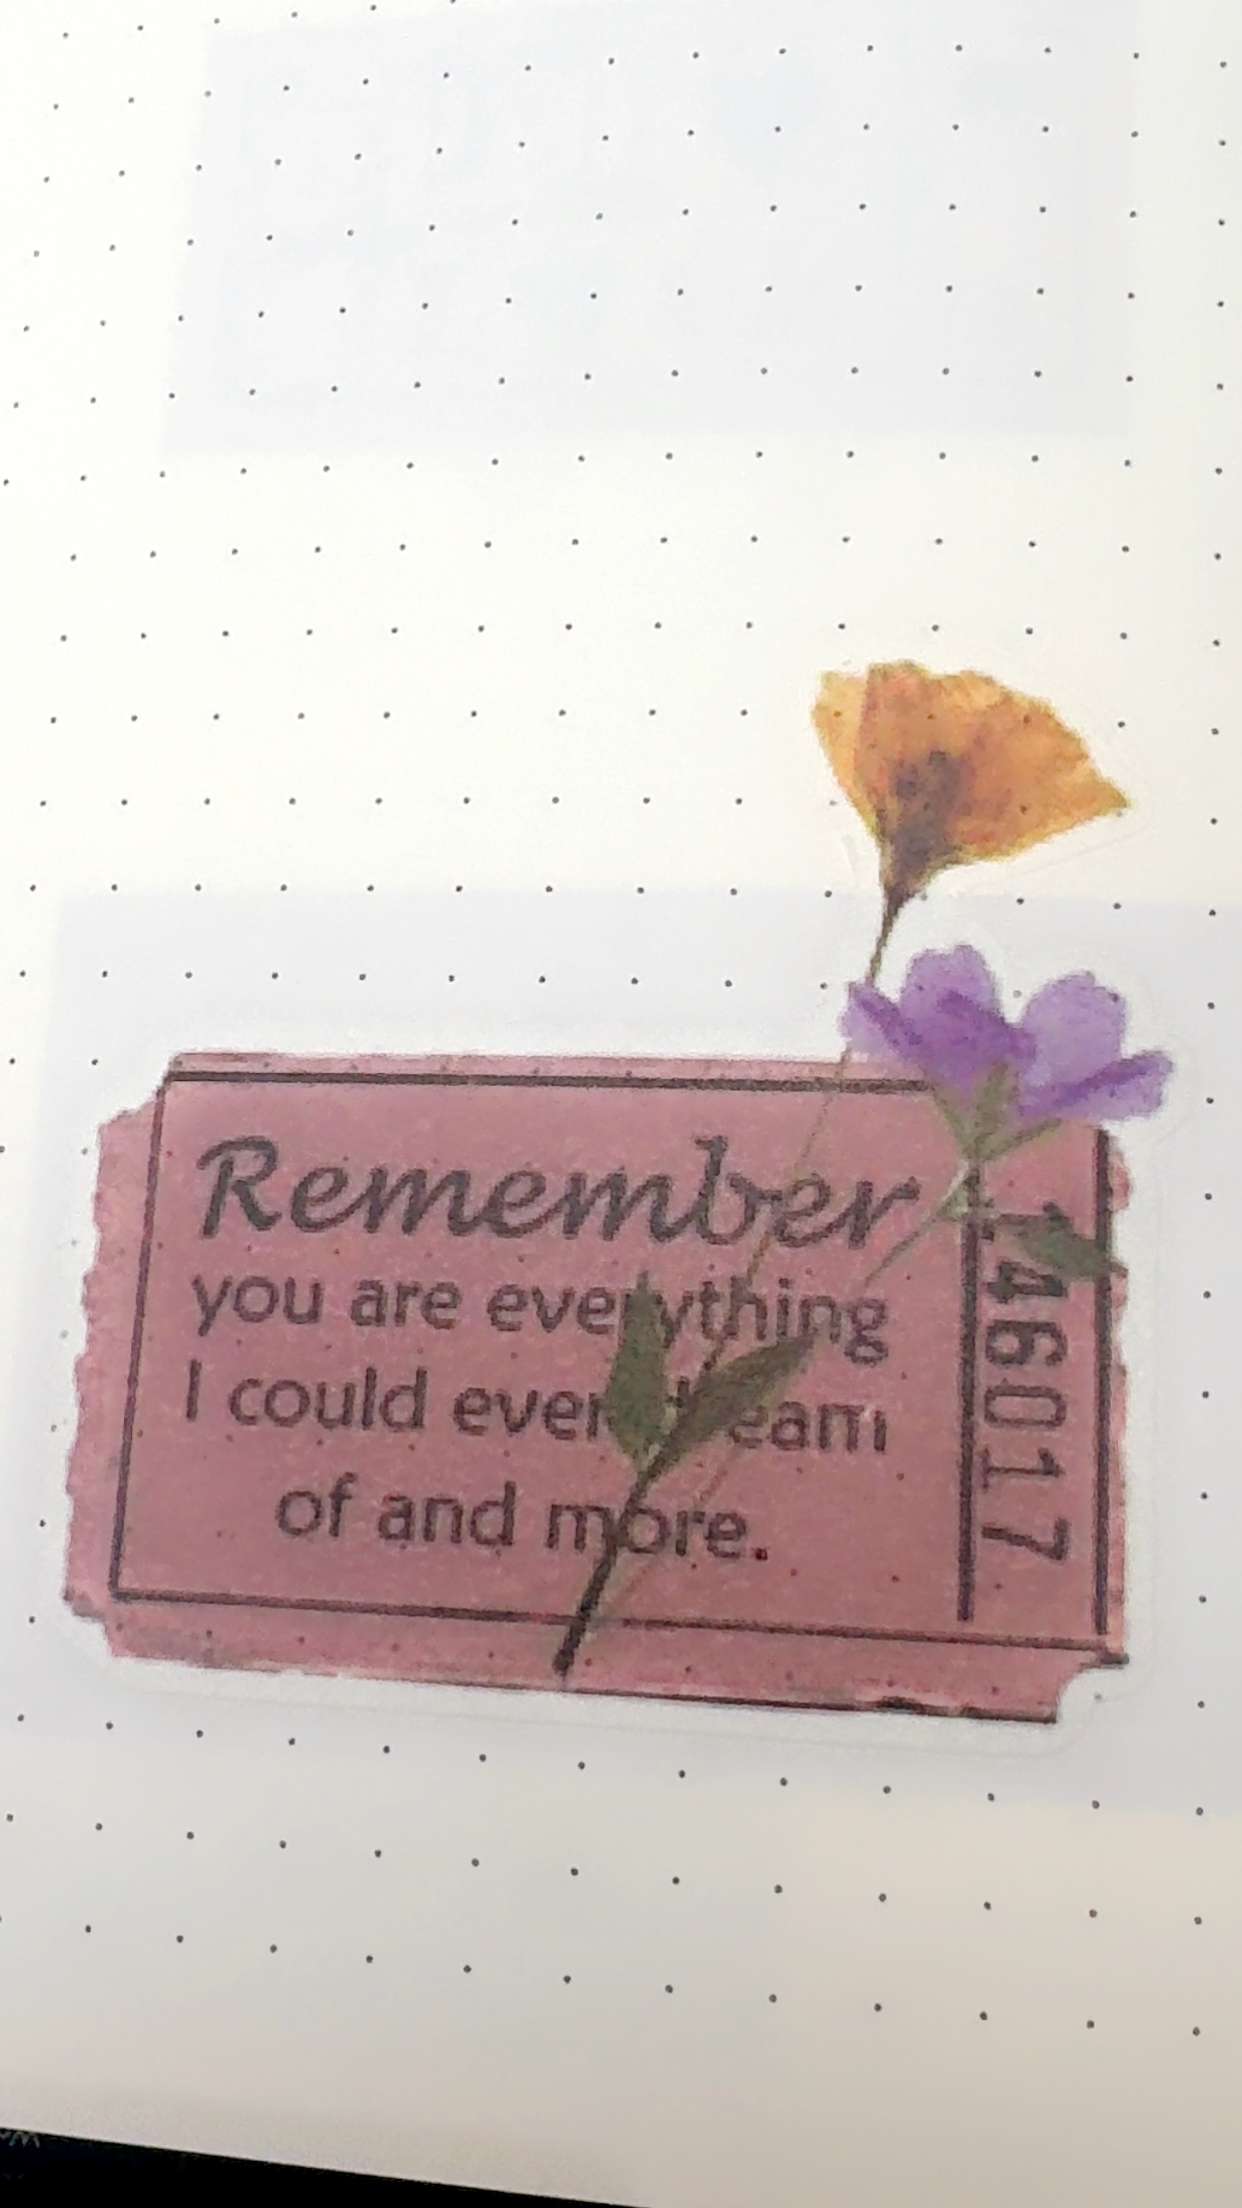 Remember
you are everything
I could ever dream
of and more.
146017